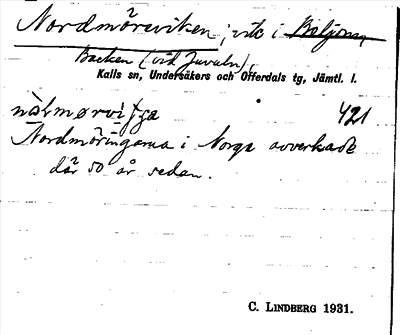 Nordmöreviken, vik i Boljom,
Backen (vid Juveln),
Kalls sn, Undersåkers och Offerdals tg, Jämtl. l.
421
Nordmöringarna i Norge avverkade
där 50 år sedan.
C. LINDBERG 1931.